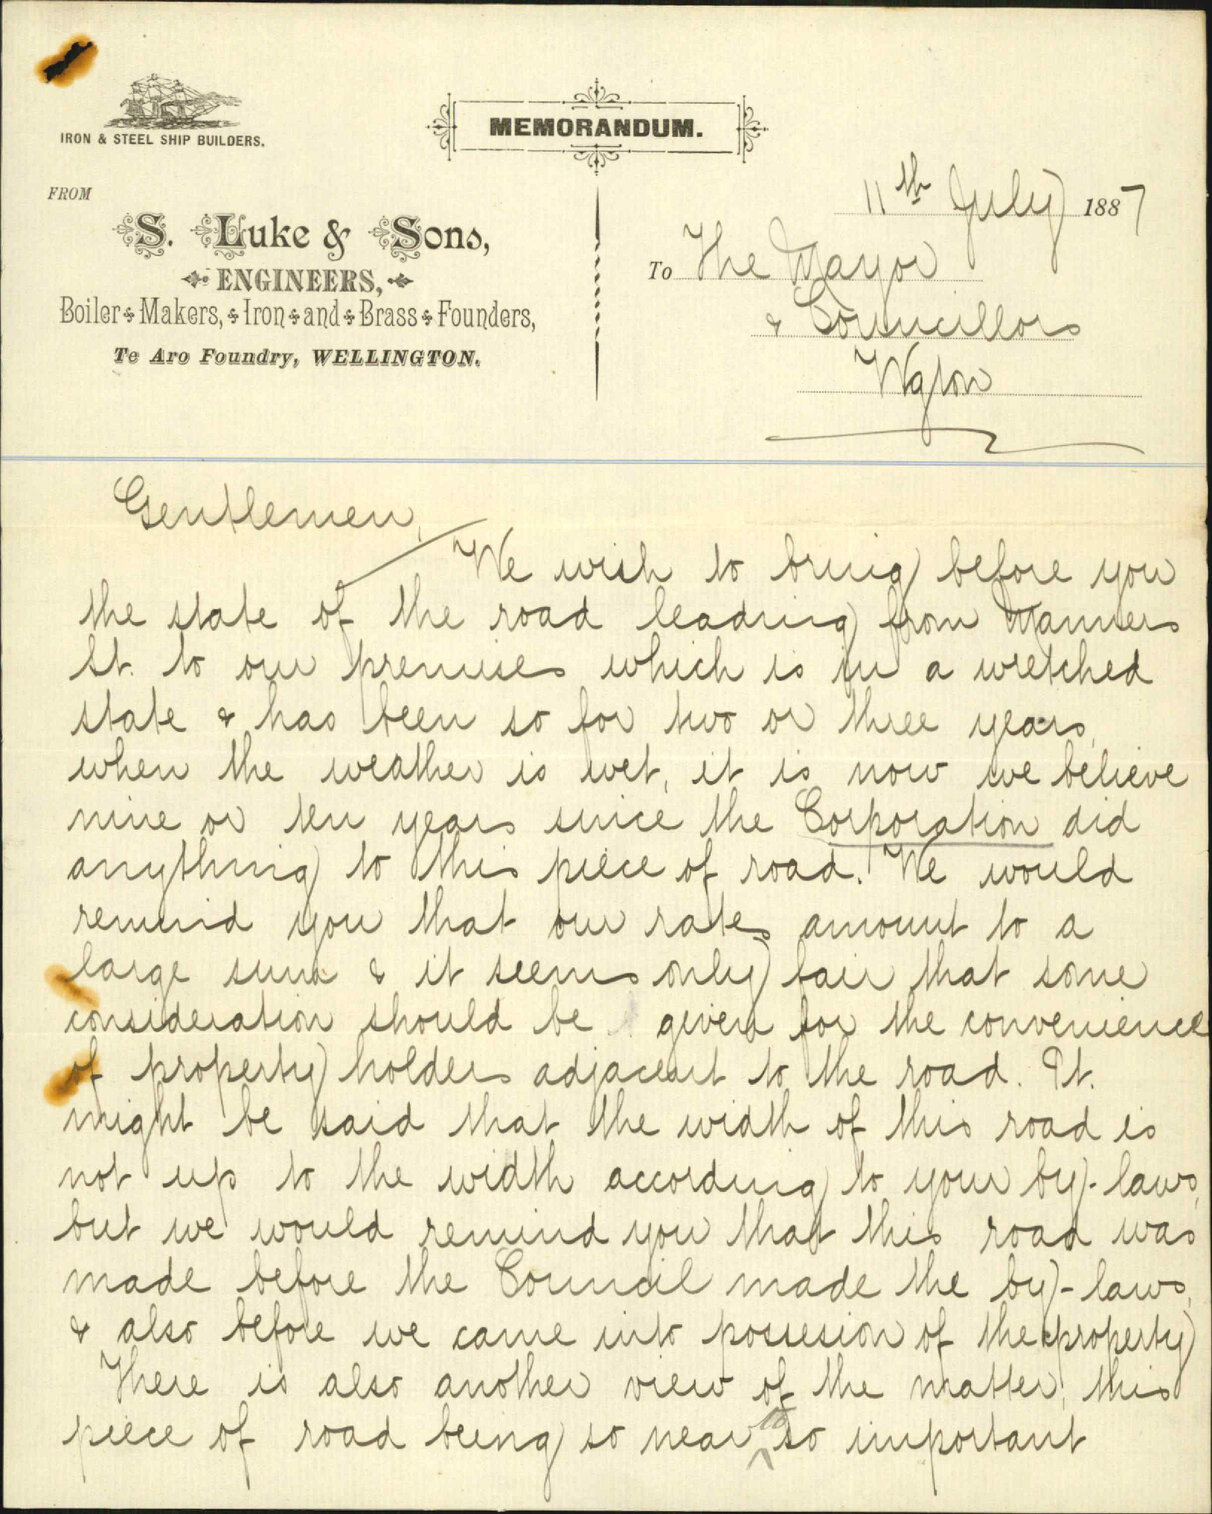 IRON & STEEL SHIP BUILDERS.
MEMORANDUM.
FROM
S. Luke & Sons,
ENGINEERS,
Boiler Makers, Iron and Brass Founders,
Te Aro Foundry, WELLINGTON.
11th July 1887
To The Mayor
& Councillors
Wgton
Gentlemen,
We wish to bring before you
the state of the road leading from Manners
St. to our premises which is in a wretched
state & has been so for two or three years,
when the weather is wet, it is now we believe
nine or ten years since the Corporation did
anything to this piece of road. We would
remind you that our rates amount to a
large sum & it seems only fair that some
consideration should be given for the convenience
of property holders adjacent to the road. It.
might be said that the width of this road is
not up to the width according to your by-laws,
but we would remind you that this road was
made before the Council made the by-laws,
& also before we came into possesion of the property
There is also another view of the matter, this
piece of road being so near to so important